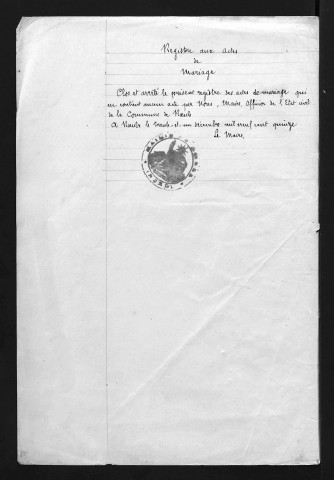 Registre aux actes
de
Mariage
Clos et arrêté le présent registre des actes de mariage qui
ne contient aucun acte par Nous, Maire, officier de l'Etat civil
de la Commune de
A le trente-et-un décembre mil neuf cent quinze
Le Maire,
MAIRIE
(INDRE)